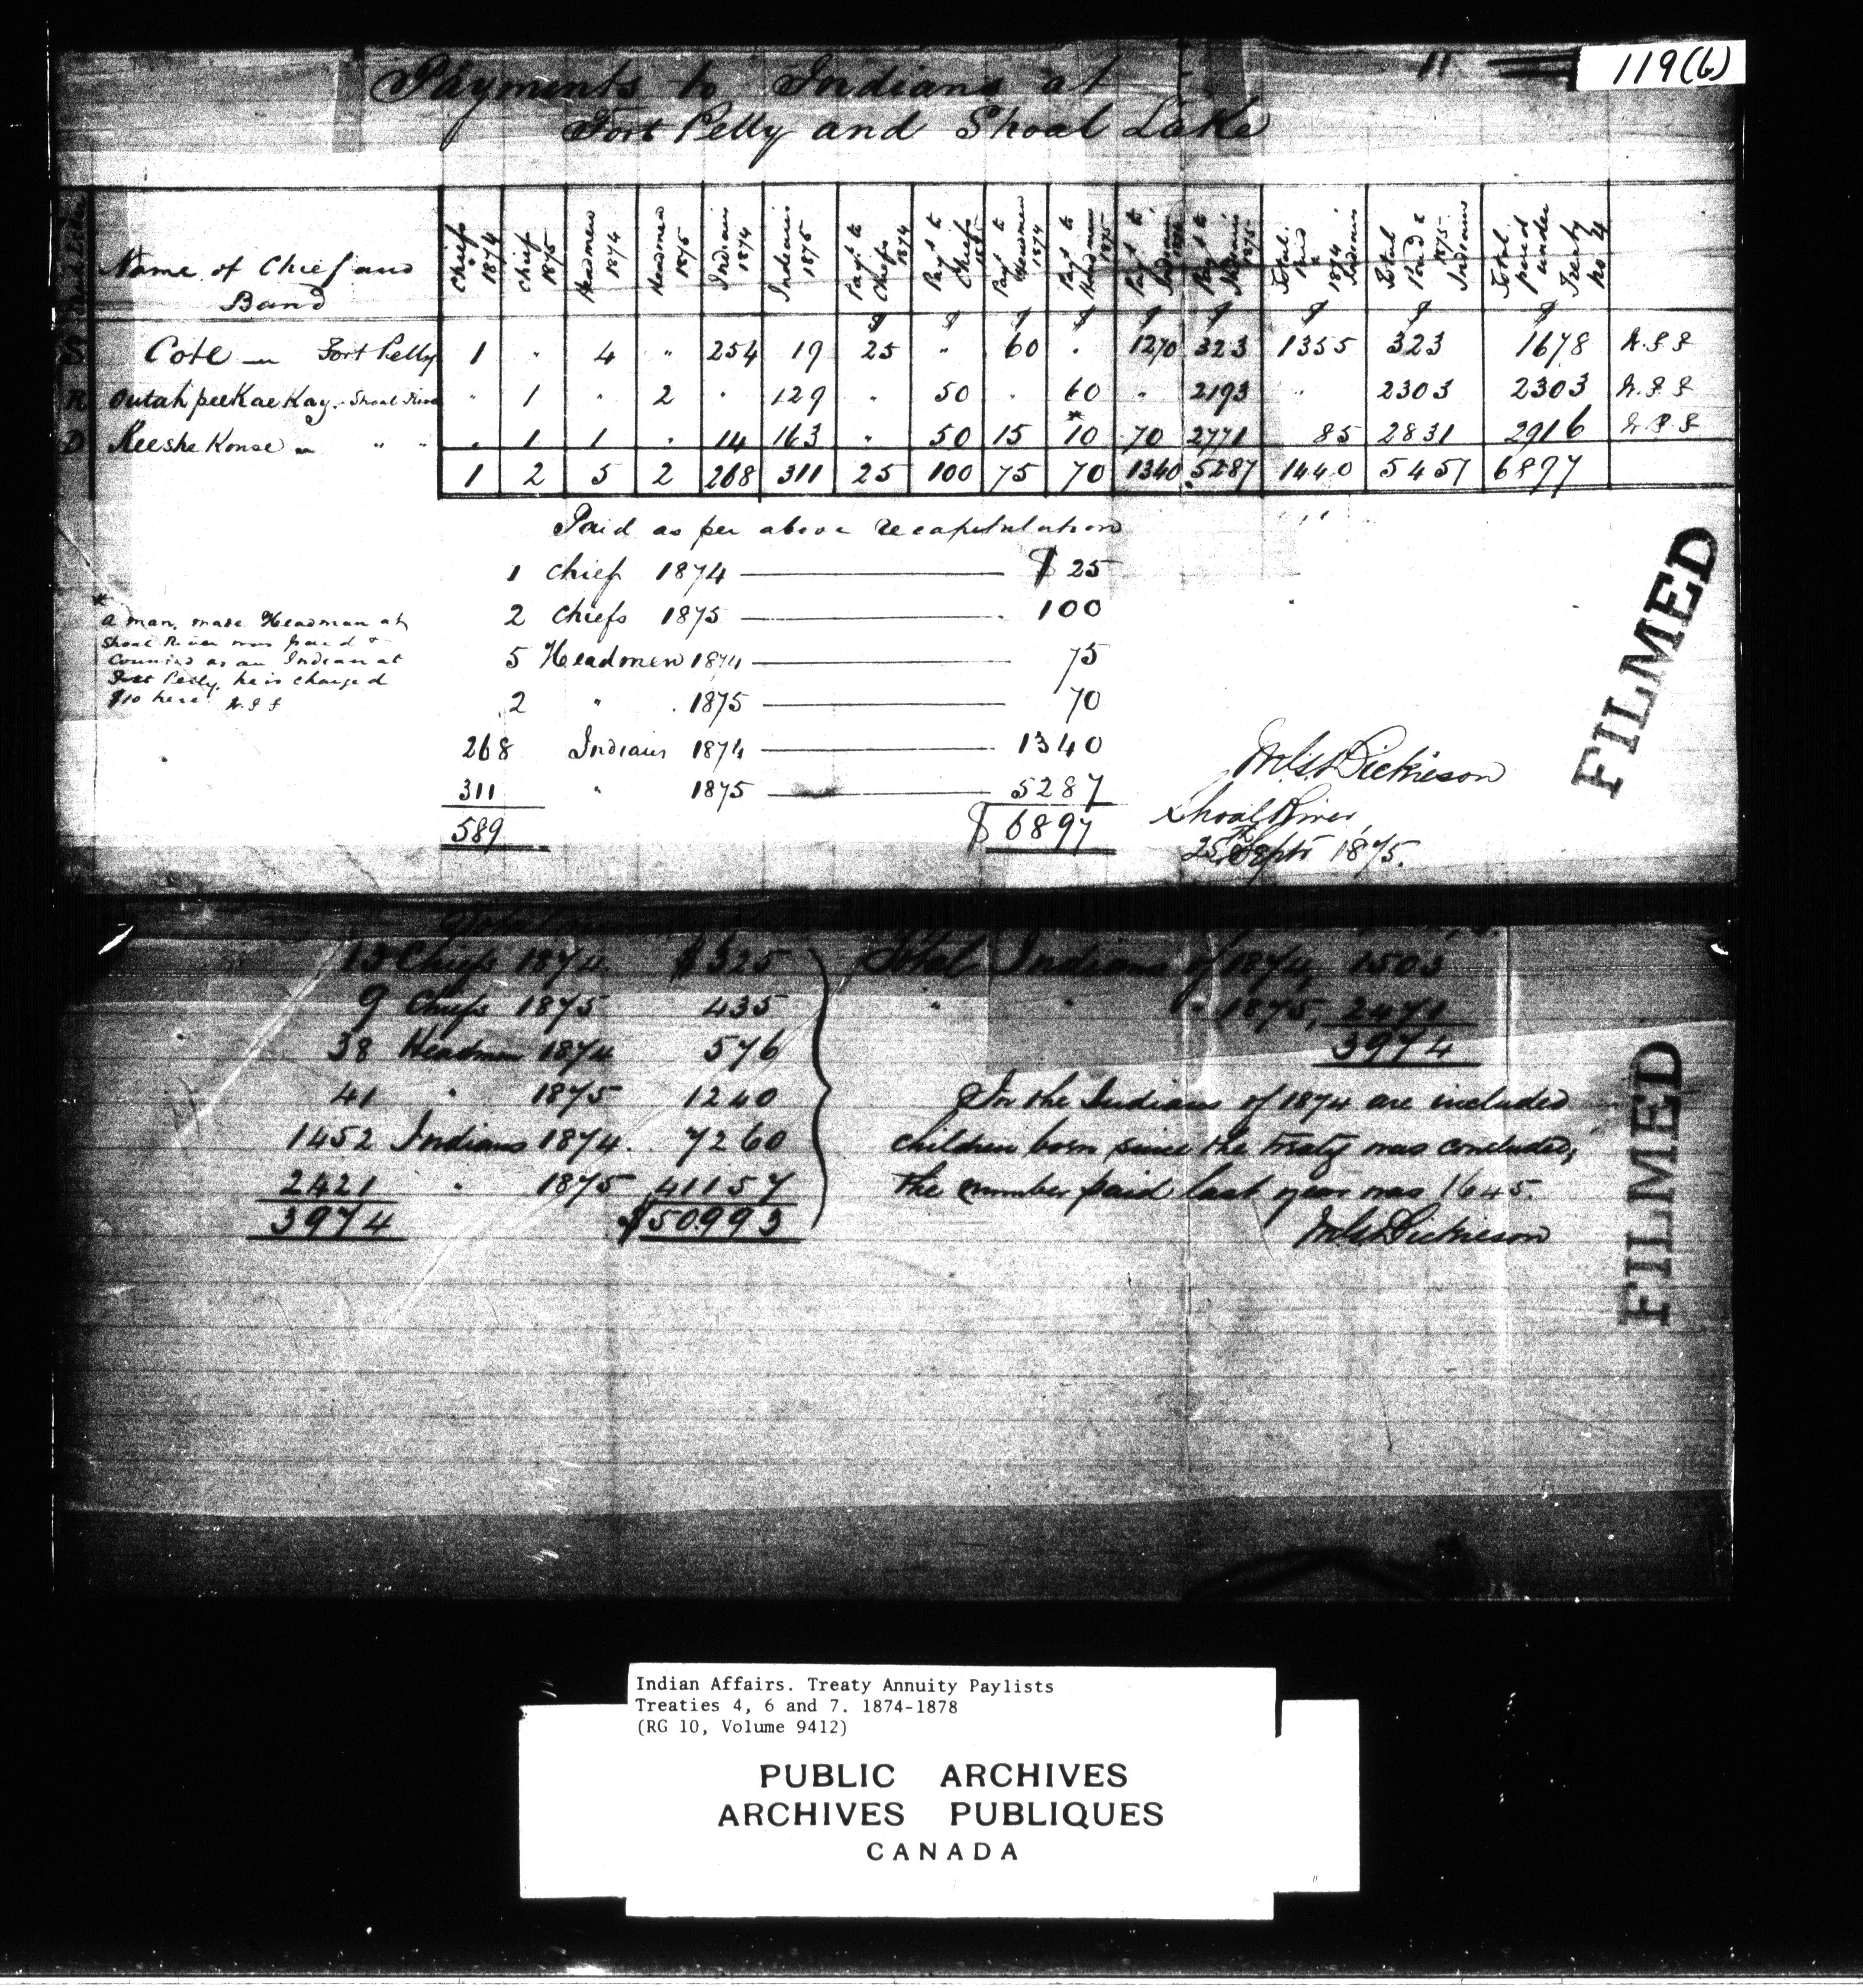 119(b)
Payments to Indians at
Fort Pelly and Shoal Lake
Name of Chief and Band | Chiefs 1874 | Chiefs 1875 | Headmen 1874 | Headmen 1875 | Indians 1874 | Indians 1875 | Pay't to Chiefs 1874 | Pay't to Chiefs 1875 | Pay't to Headmen 1874 | Pay't to Headmen 1875 | Pay't to Indians 1874 | Pay't to Indians 1875 | Total Paid 1874 Indians | Total Paid 1875 Indians | Total paid under Treaty No 4
$ $ $ $ $ $ $ $ $
S Cote — Fort Pelly 1 " 4 " 254 19 25 " 60 . 1270 323 1355 323 1678
R OutahpeeKaeKay. - Shoal River " 1 " 2 " 129 " 50 " 60 " 2193 " 2303 2303
D KeesheKonse — " " . 1 1 . 14 163 " 50 15 *10 70 2771 85 2831 2916
1 2 5 2 268 311 25 100 75 70 1340 5287 1440 5457 6897
Paid as per above recapitulation
1 Chief 1874 — $ 25
2 Chiefs 1875 — 100
5 Headmen 1874 — 75
2 " 1875 — 70
268 Indians 1874 — 1340
311 " 1875 — 5287
589 $ 6897
*
a man, made Headman at
Shoal River was paid &
Counted as an Indian at
Fort Pelly, he is charged
$10 here
M.G. Dickieson
Shoal River,
25th Septr 1875.
FILMED
13 Chiefs 1874. $325
9 Chiefs 1875 435
38 Headmen 1874 576
41 " 1875 1240
1452 Indians 1874. 7260
2421 " 1875 41157
3974 $50993
Total Indians of 1874, 1503
" " " 1875, 2471
3974
In the Indians of 1874 are included
children born since the treaty was concluded;
the number paid last year was 1645.
M.G. Dickieson
FILMED
Indian Affairs. Treaty Annuity Paylists
Treaties 4, 6 and 7. 1874-1878
(RG 10, Volume 9412)
PUBLIC ARCHIVES
ARCHIVES PUBLIQUES
CANADA